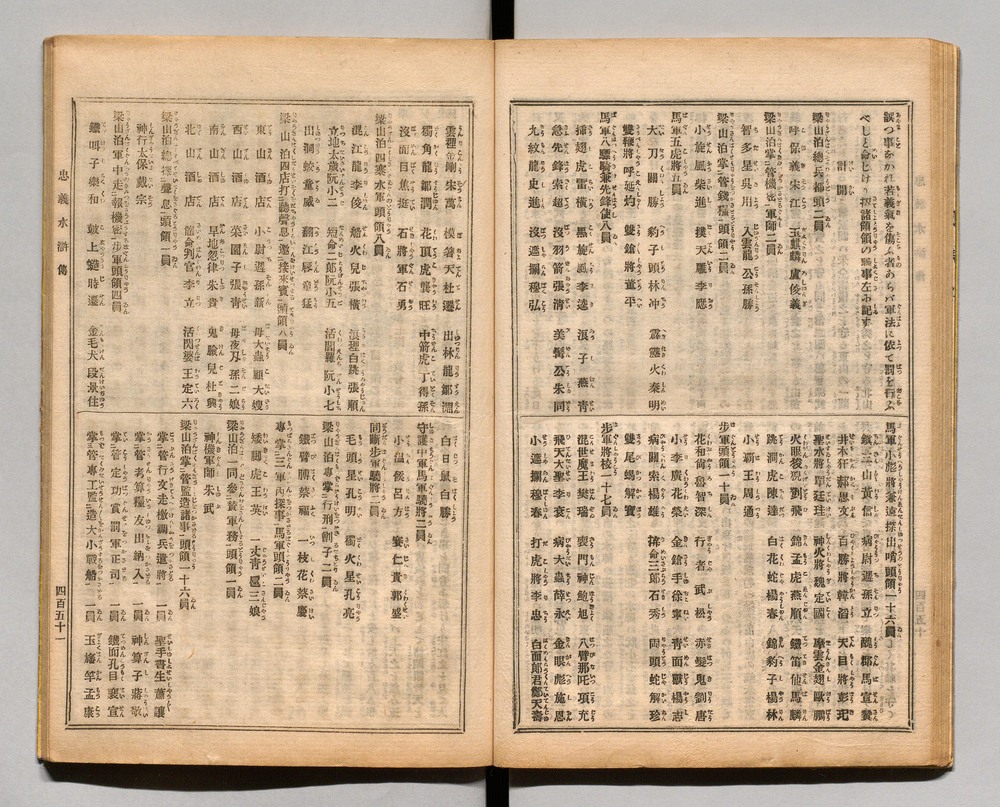 誤つ事なかれ若義氣を傷ふ者あらバ軍法に依て罰を行ふ
べしと命じけり扨諸頭領の職事左に記す
計開
梁山泊總兵都頭領二員
呼保義宋江 玉麒麟盧俊義
梁山泊掌管機密軍師二員
智多星吳用 入雲龍公孫勝
梁山泊掌管錢糧頭領二員
小旋風柴進 撲天鵰李應
馬軍五虎將五員
大刀關勝 豹子頭林冲 霹靂火秦明
雙鞭將呼延灼 雙鎗將董平
馬軍八驃騎兼先鋒使八員
小李廣花榮 金鎗手徐寧 青面獸楊志
急先鋒索超 沒羽箭張淸 美髯公朱同
九紋龍史進 沒遮攔穆弘
馬軍小彪將兼遠探出哨頭領一十六員
鎮三山黃信 病尉遲孫立 醜郡馬宣贊
井木犴郝思文 百勝將韓滔 天目將彭玘
聖水將單廷珪 神火將魏定國 摩雲金翅歐鵬
火眼狻猊鄧飛 錦毛虎燕順 鐵笛仙馬麟
跳澗虎陳達 白花蛇楊春 錦豹子楊林
小霸王周通
步軍頭領一十員
花和尙魯智深 行者武松 赤髮鬼劉唐
插翅虎雷橫 黑旋風李逵 浪子燕靑
病關索楊雄 拚命三郎石秀 兩頭蛇解珍
雙尾蝎解寶
步軍將校一十七員
混世魔王樊瑞 喪門神鮑旭 八臂那吒項充
飛天大聖李袞 病大蟲薛永 金眼彪施恩
小遮攔穆春 打虎將李忠 白面郎君鄭天壽
雲裡金剛宋萬 摸著天杜遷 出林龍鄒淵
獨角龍鄒潤 花頂虎龔旺 中箭虎丁得孫
沒面目焦挺 石將軍石勇
梁山泊四寨水軍頭領八員
混江龍李俊 船火兒張橫 浪裡白跳張順
立地太歲阮小二 短命二郎阮小五 活閻羅阮小七
出洞蛟童威 翻江蜃童猛
梁山泊四店打聽聲息邀接來賓頭領八員
東山酒店 小尉遲孫新 母大蟲顧大嫂
西山酒店 菜園子張靑 母夜叉孫二娘
南山酒店 旱地忽律朱貴 鬼臉兒杜興
北山酒店 催命判官李立 活閃婆王定六
梁山泊總探聲息頭領一員
神行太保戴宗
梁山泊軍中走報機密步軍頭領四員
鐵叫子樂和 鼓上蚤時遷 金毛犬段景住
白日鼠白勝
守護中軍馬軍驍將二員
小溫侯呂方 賽仁貴郭盛
同驍步軍驍將二員
毛頭星孔明 獨火星孔亮
梁山泊專掌行刑劊子二員
鐵臂膊蔡福 一枝花蔡慶
專掌三軍內探事馬軍頭領二員
矮脚虎王英 一丈靑扈三娘
梁山泊一同參贊軍務頭領一員
神機軍師朱武
梁山泊掌管監造諸事頭領一十六員
掌管行文走檄調兵遣將一員 聖手書生蕭讓
掌管考算糧友出納入一員 神算子蔣敬
掌管定功賞罰軍正司一員 鐵面孔目裴宣
掌管專工監造大小戰船一員 玉旛竿孟康
忠義水滸傳
四百五十一
四百五十